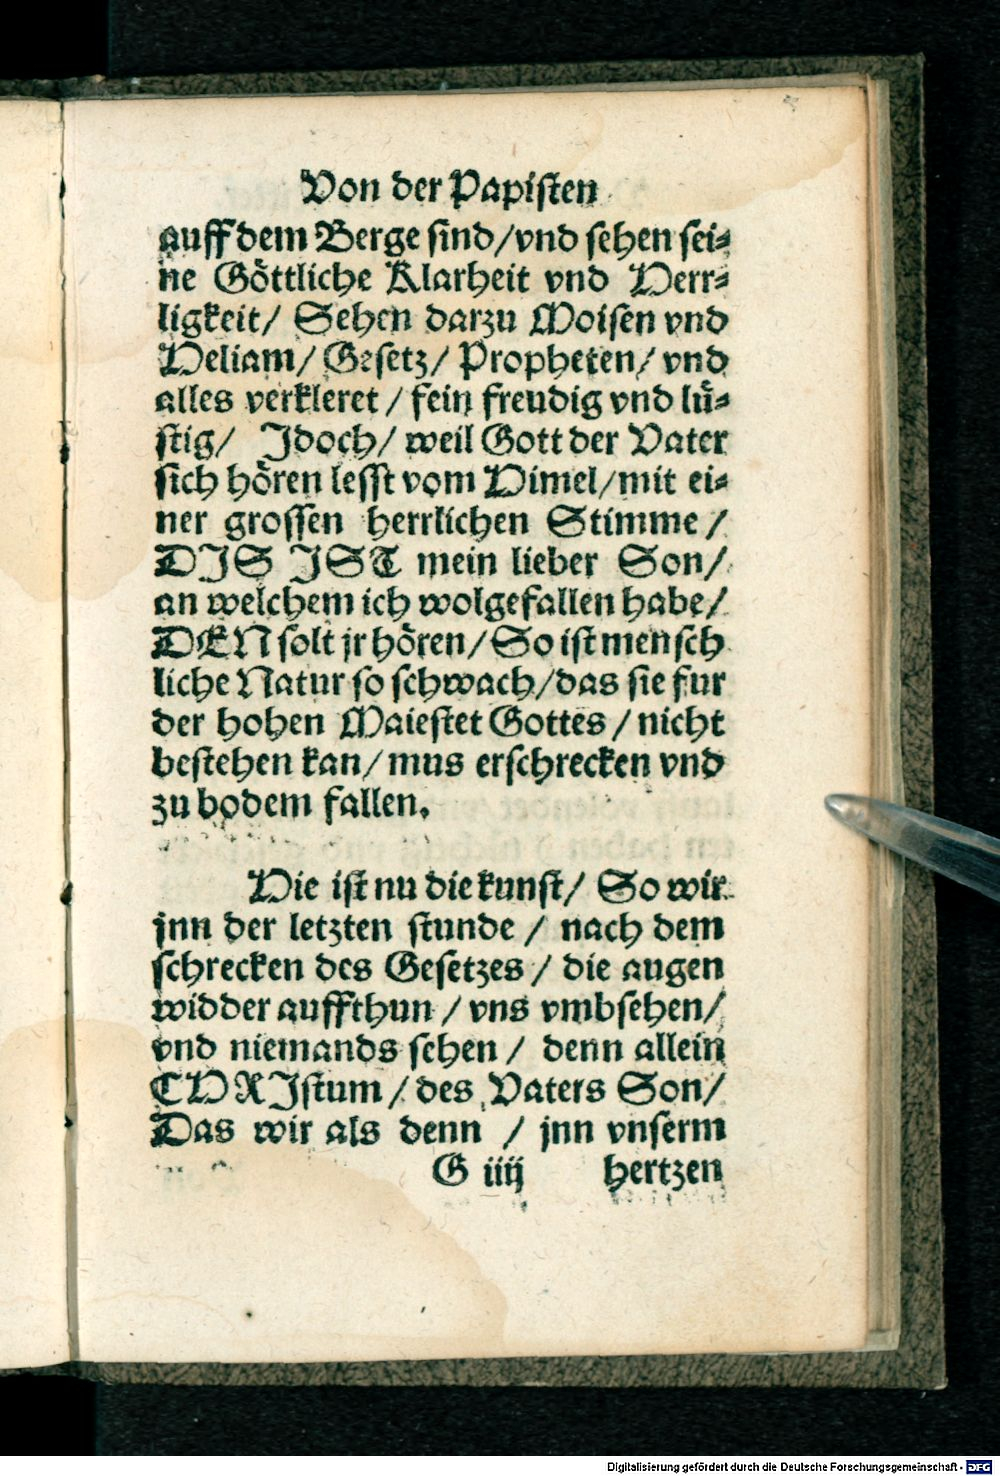 Von der Papisten
auff dem Berge sind/vnd sehen sei⸗
ne Göttliche Klarheit vnd Herr⸗
ligkeit/ Sehen darzu Moisen vnd
Heliam/ Gesetz/ Propheten/ vnd
alles verkleret / fein freudig vnd lü⸗
stig/ Jdoch/ weil Gott der Vater
sich hören lesst vom Himel/mit ei⸗
ner grossen herrlichen Stimme /
DJS JST mein lieber Son/
an welchem ich wolgefallen habe/
DEN solt jr hören/ So ist mensch
liche Natur so schwach/das sie fur
der hohen Maiestet Gottes / nicht
bestehen kan/ mus erschrecken vnd
zu bodem fallen.
Hie ist nu die kunst/ So wir
jnn der letzten stunde / nach dem
schrecken des Gesetzes / die augen
widder auffthun / vns vmbsehen/
vnd niemands sehen / denn allein
CHRJstum / des Vaters Son/
Das wir als denn / jnn vnserm
G iiij hertzen
Digitalisierung gefördert durch die Deutsche Forschungsgemeinschaft - DFG